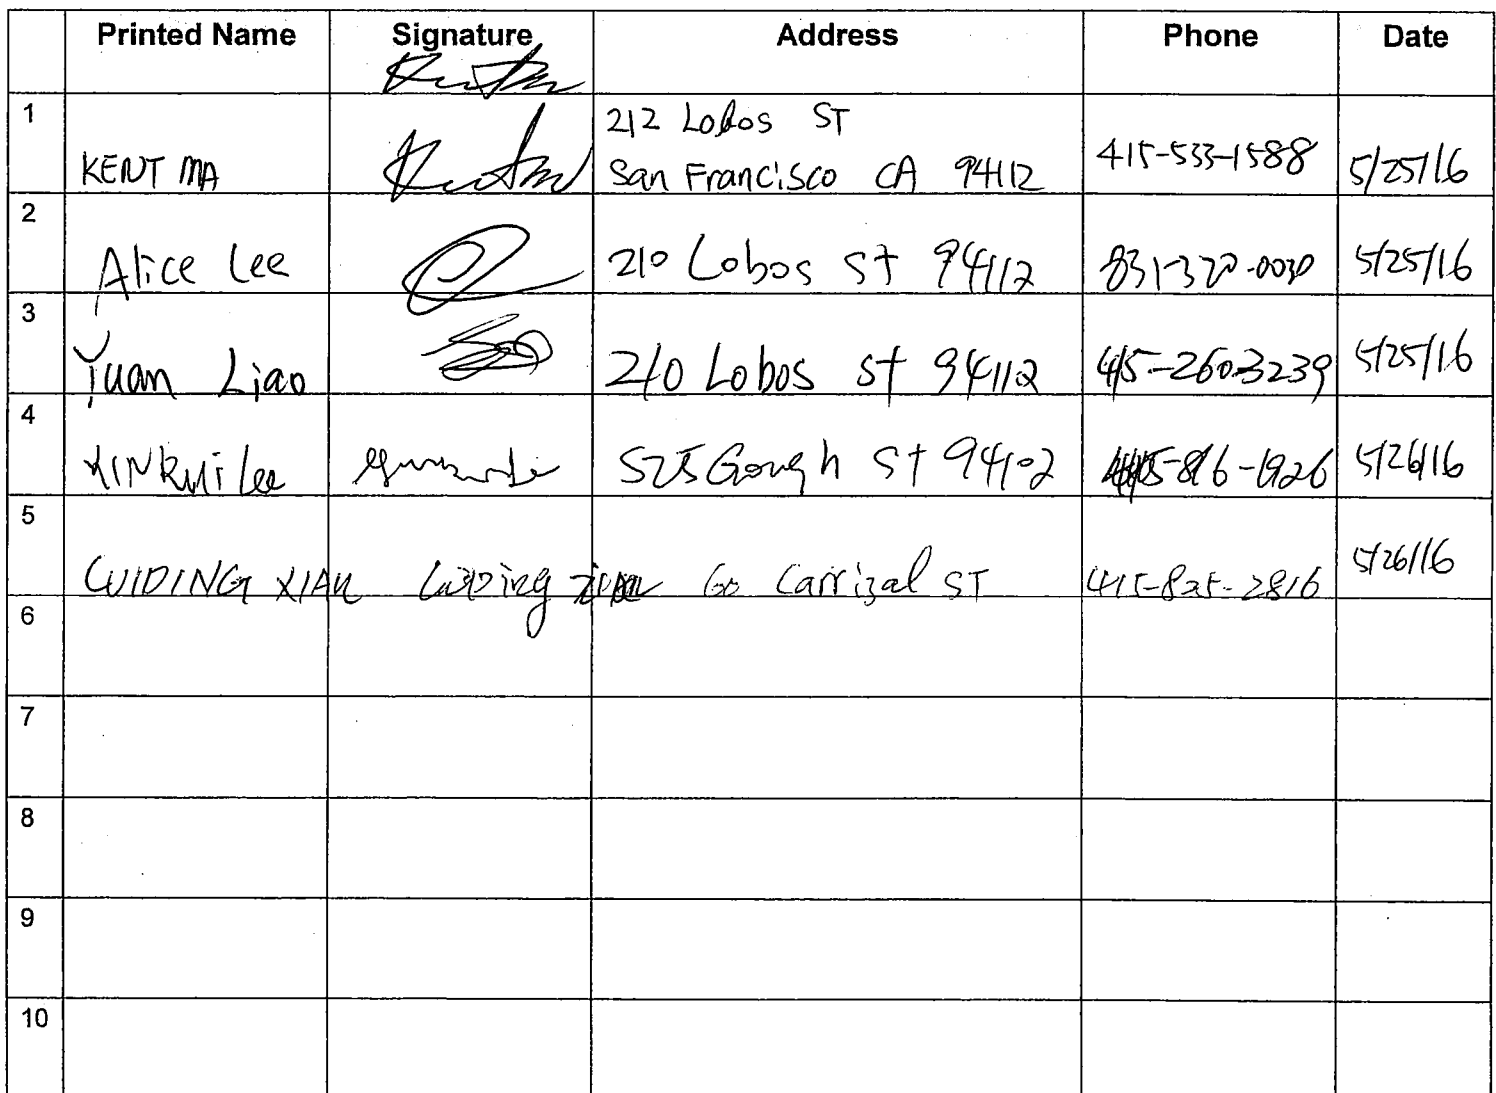 Printed Name Signature Address Phone Date
1
212 Lobos ST
KENT MA San Francisco CA 94112 415-533-1588 5/25/16
2
Alice Lee 210 Lobos St 94112 831-320-0030 5/25/16
3
Yuan Liao 210 Lobos St 94112 415-260-3239 5/25/16
4
XINKUI Lee 525 Gough St 94102 415-816-1926 5/26/16
5
CUIDING XIAN Cuiding Xian 60 Carrizal ST 415-825-2816 5/26/16
6
7
8
9
10